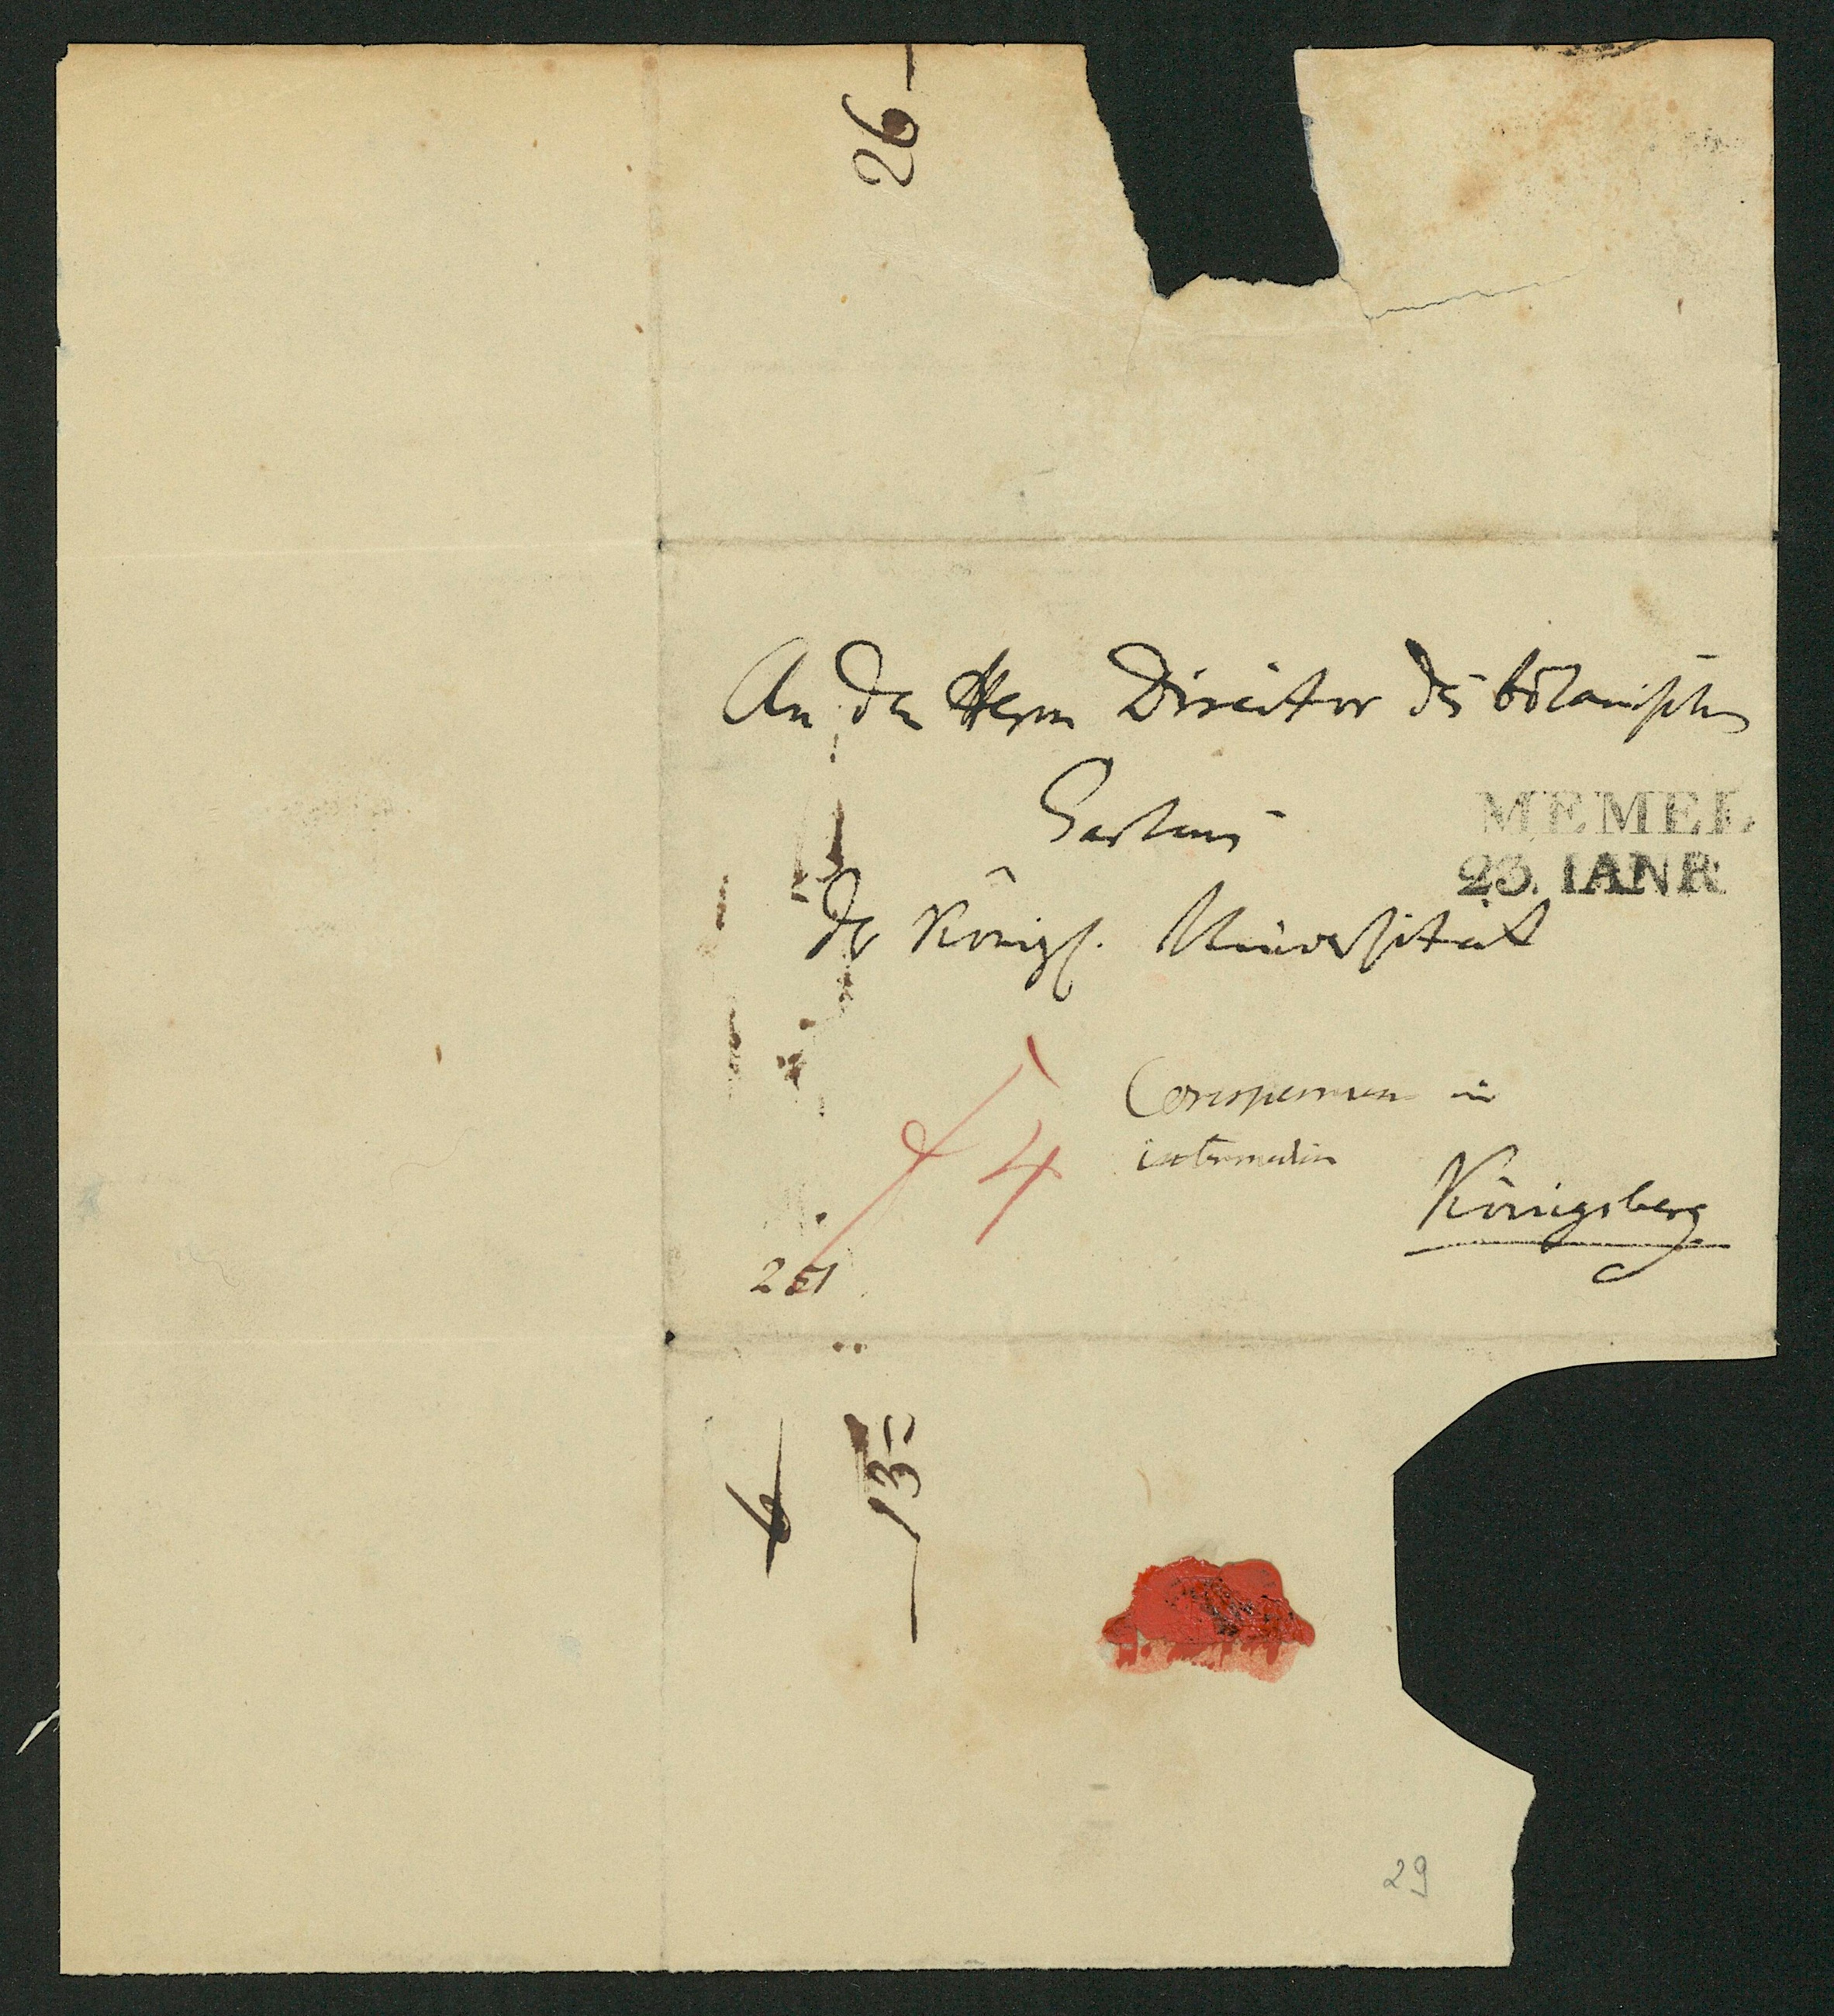 26
An den Herrn Director des botanischen
Gartens
MEMEL
23. IANR
der Königl. Universität
4
Corispermum in
intermedium
Königsberg
251
6
13
29